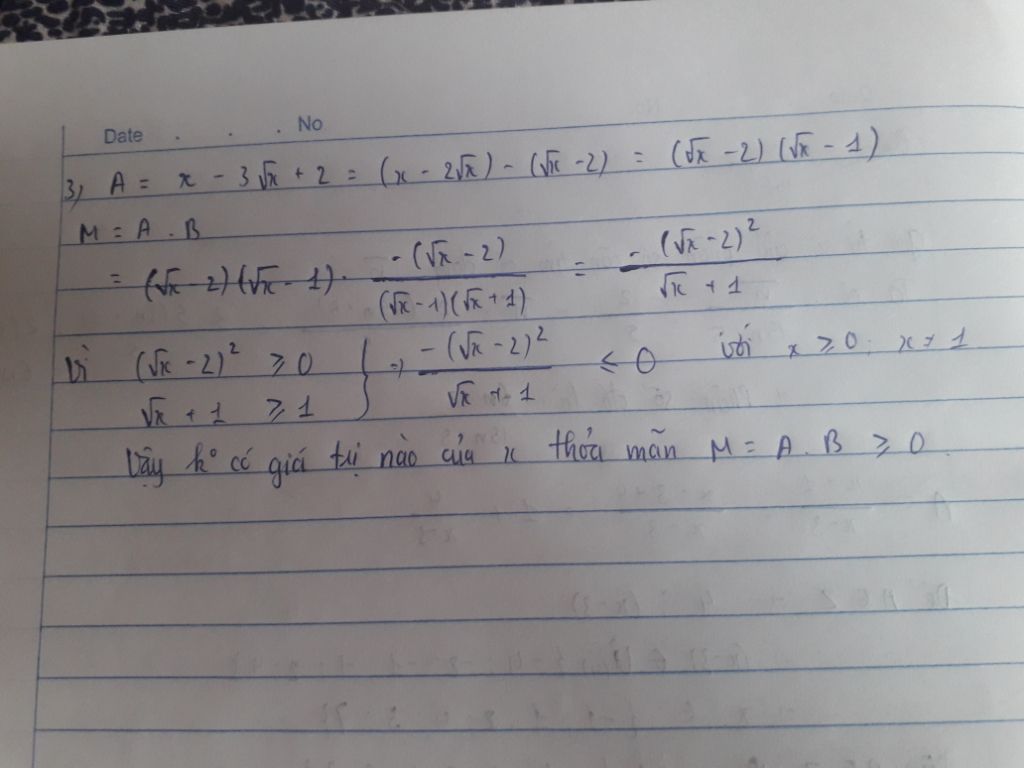 Date . . . No
3) A = x - 3√x + 2 = (x - 2√x) - (√x - 2) = (√x - 2)(√x - 1)
M = A . B
= (√x - 2)(√x - 1) . -(√x - 2) / (√x - 1)(√x + 1) = -(√x - 2)² / √x + 1
Vì (√x - 2)² ≥ 0
√x + 1 ≥ 1 } => -(√x - 2)² / √x + 1 ≤ 0 với x ≥ 0; x ≠ 1
Vậy k° có giá trị nào của x thỏa mãn M = A . B ≥ 0.